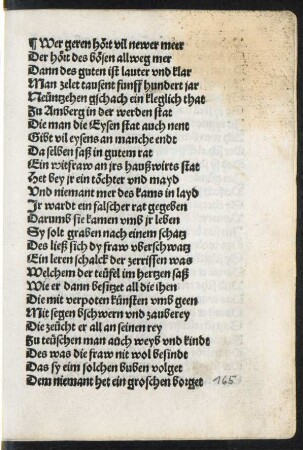 ¶ Wer geren hört vil newer meer
Der hört des bösen allweg mer
Dann des guten ist lauter vnd klar
Man zelet tausent funff hundert jar
Neüntzehen gschach ein kleglich that
Zu Amberg in der werden stat
Die man die Eysen stat auch nent
Gibt vil eysens an manche endt
Da selben saß in gutem rat
Ein witfraw an jrs haußwirts stat
Het bey jr ein töchter vnd mayd
Vnd niemant mer des kams in layd
Jr wardt ein falscher rat gegeben
Darumb sie kamen vmb jr leben
Sy solt graben nach einem schatz
Des ließ sich dy fraw vberschwatz
Ein leren schalck der zerrissen was
Welchem der teüfel im hertzen saß
Wie er dann besitzet all die ihen
Die mit verpoten künsten vmb geen
Mit segen bschwern vnd zauberey
Die zeücht er all an seinen rey
Zu teüschen man auch weyb vnd kindt
Des was die fraw nit wol besindt
Das sy eim solchen buben volget
Dem niemant het ein groschen borget
165